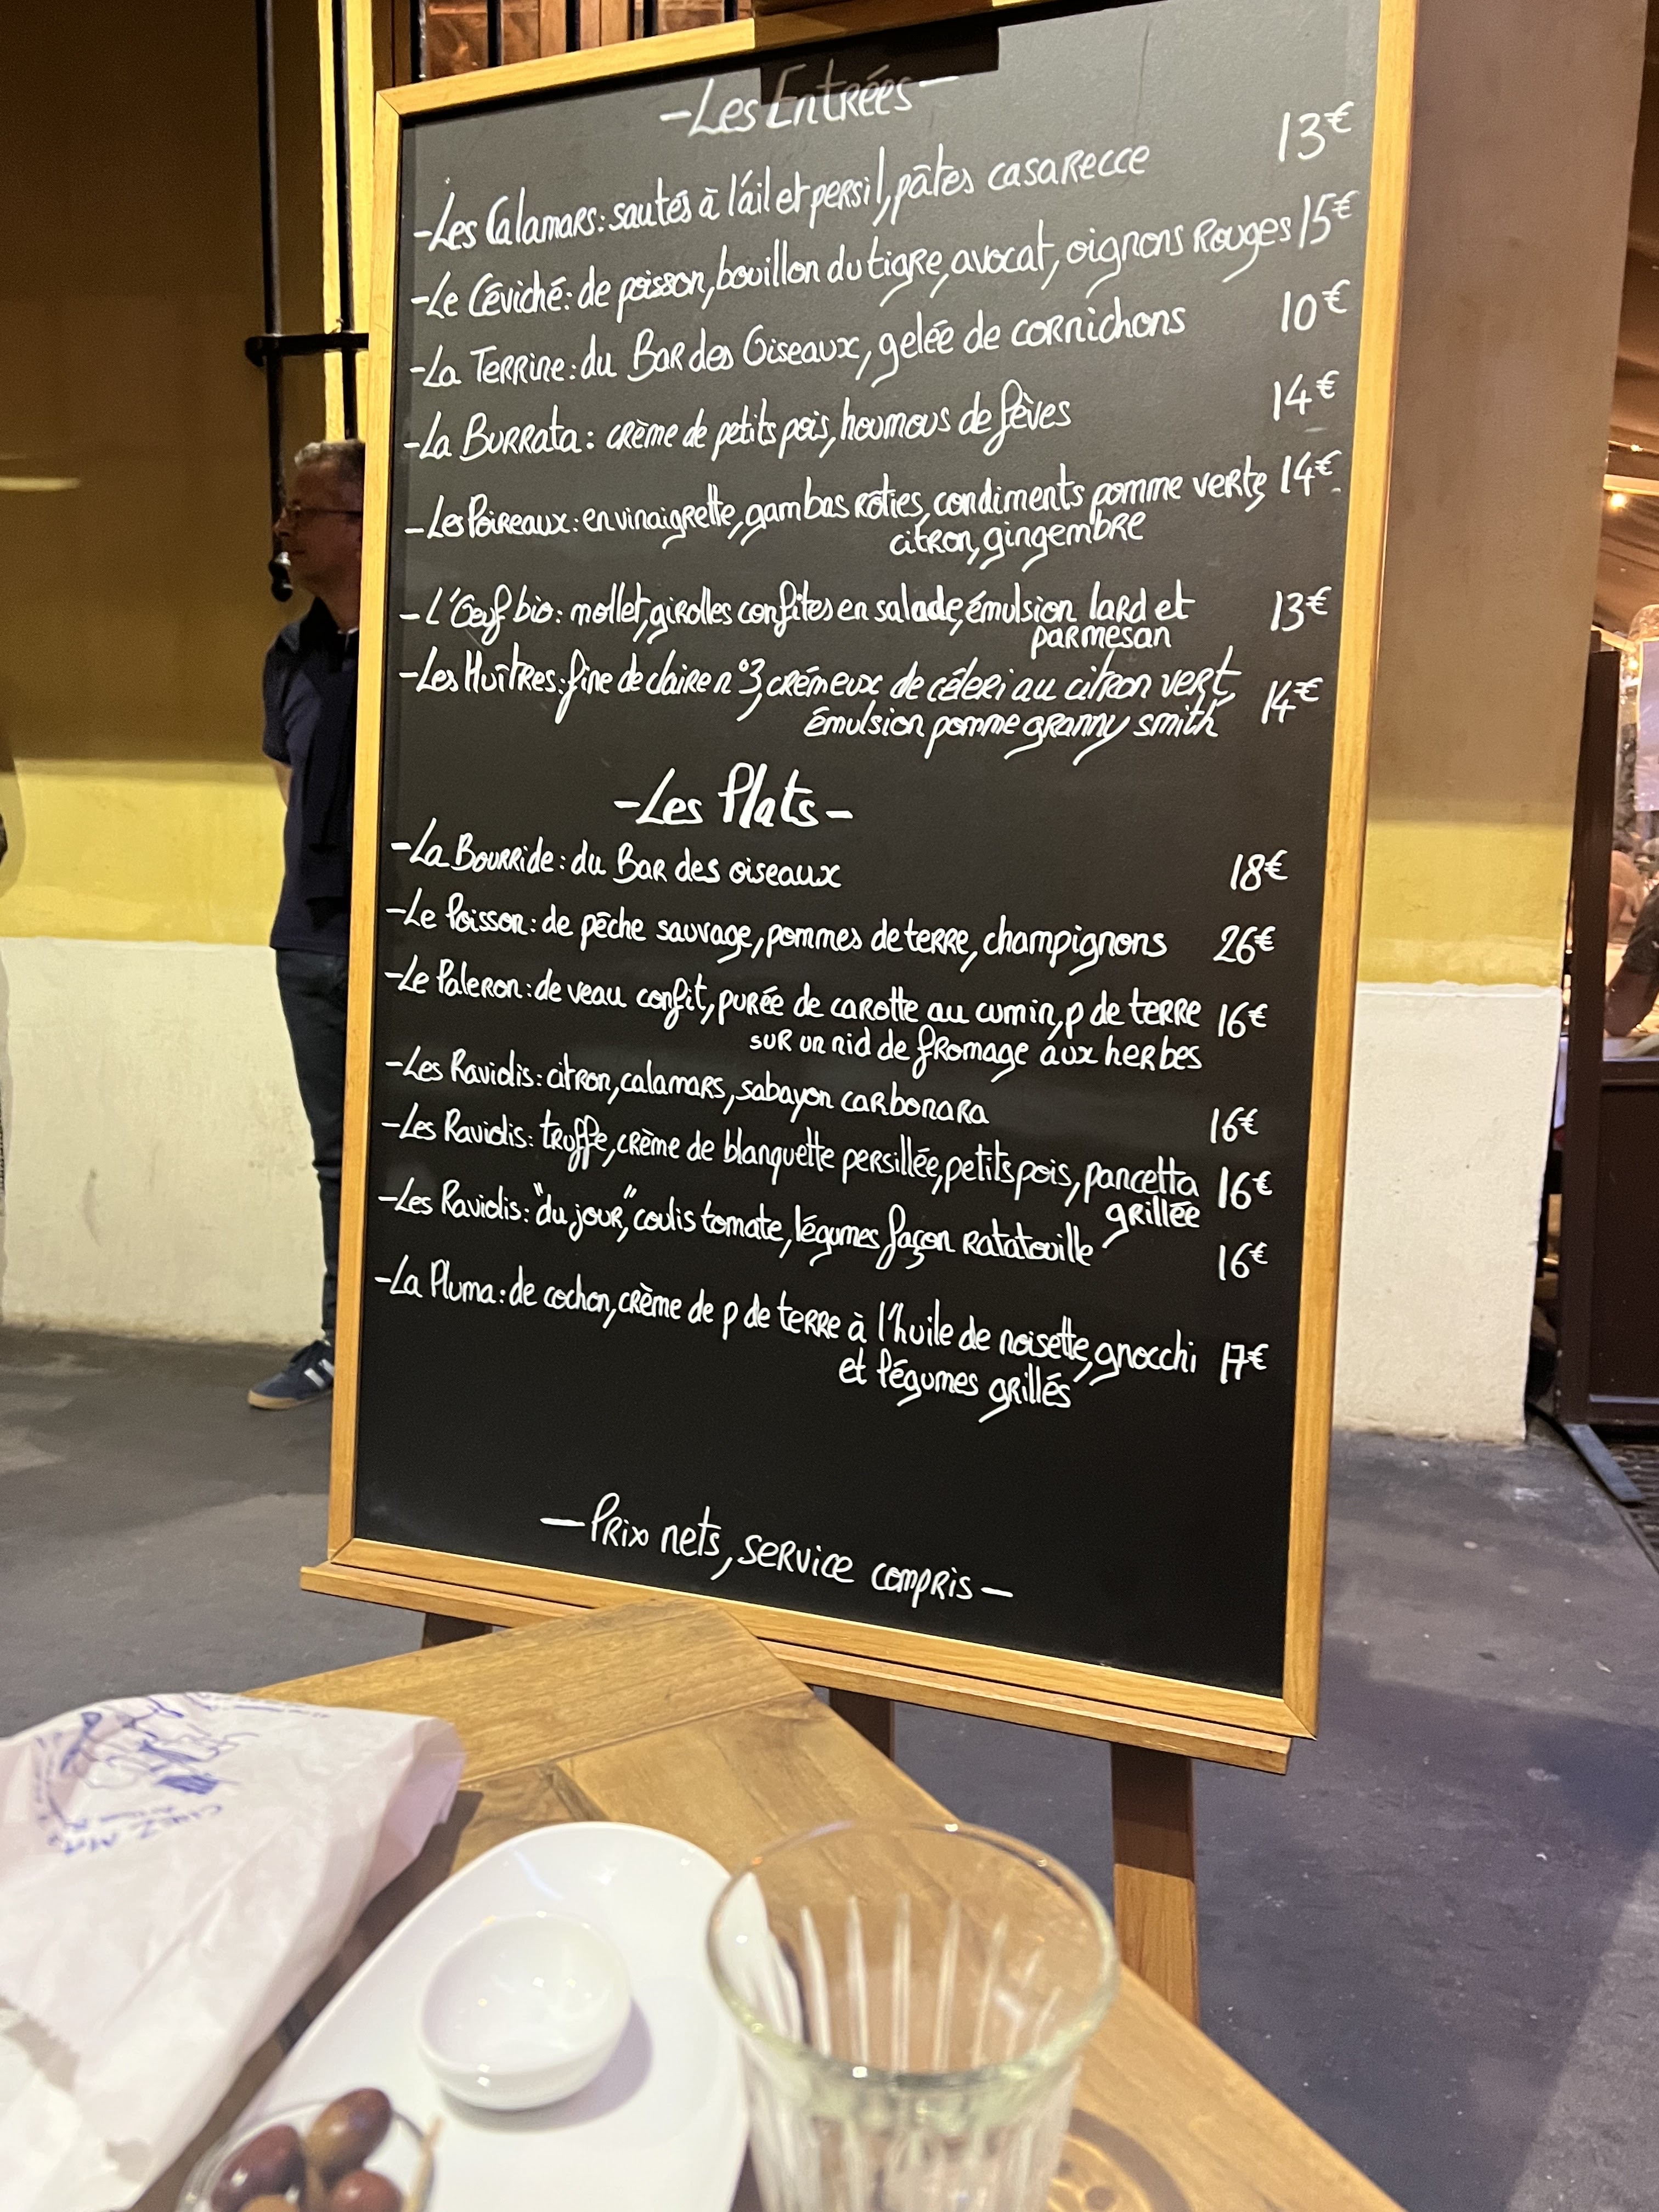 -Les Entrées-
-Les Calamars: sautés à l'ail et persil, pâtes casarecce 13€
-Le Céviché: de poisson, bouillon du tigre, avocat, oignons Rouges 15€
-La Terrine: du Bar des Oiseaux, gelée de cornichons 10€
-La Burrata: crème de petits pois, houmous de fèves 14€
-Les Poireaux: en vinaigrette, gambas rôties, condiments pomme verte, 14€
citron, gingembre
-L'Oeuf bio: mollet, girolles confites en salade, émulsion lard et 13€
parmesan
-Les Huîtres: fine de claire n°3, crémeux de céleri au citron vert, 14€
émulsion pomme granny smith
-Les Plats-
-La Bourride: du Bar des oiseaux 18€
-Le Poisson: de pêche sauvage, pommes de terre, champignons 26€
-Le Paleron: de veau confit, purée de carotte au cumin, p de terre 16€
sur un nid de fromage aux herbes
-Les Raviolis: citron, calamars, sabayon carbonara 16€
-Les Raviolis: truffe, crème de blanquette persillée, petits pois, pancetta 16€
grillée
-Les Raviolis: "du jour", coulis tomate, légumes façon Ratatouille 16€
-La Pluma: de cochon, crème de p de terre à l'huile de noisette, gnocchi 17€
et légumes grillés
- Prix nets, service compris -
CHEZ